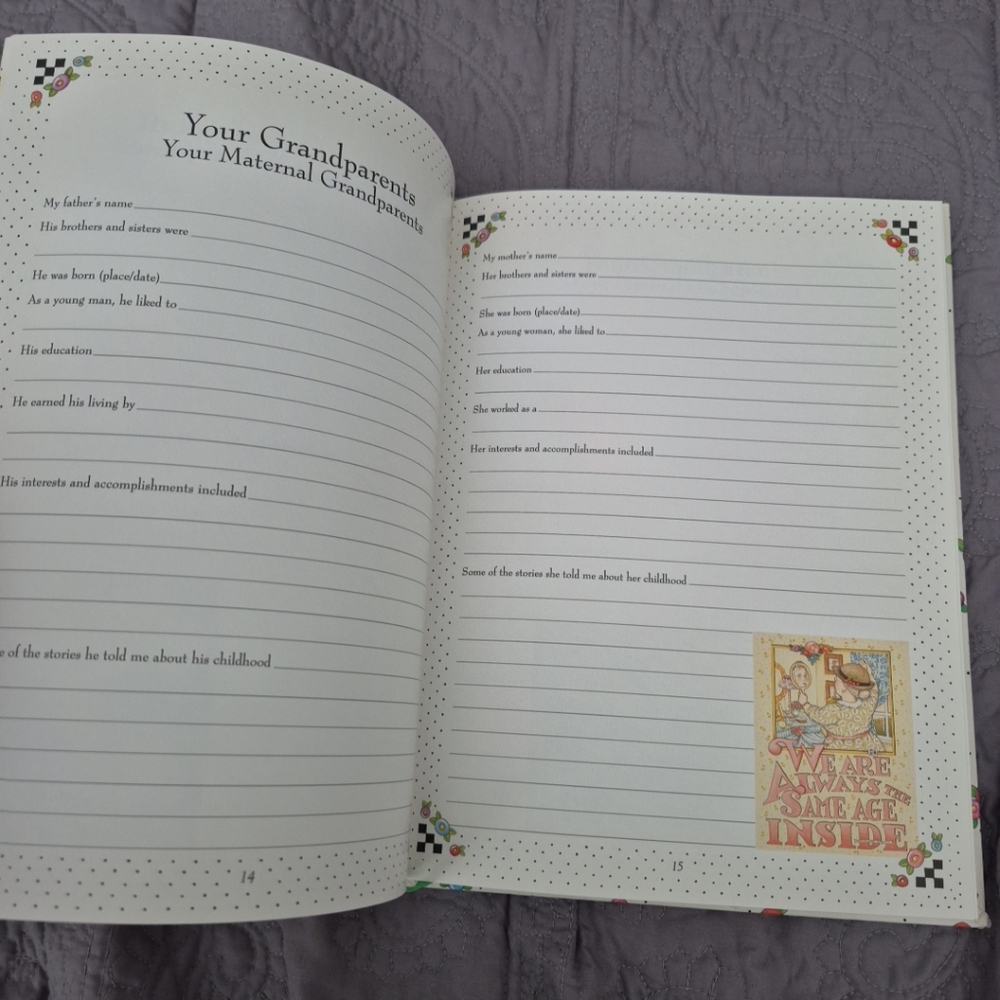 Your Grandparents
Your Maternal Grandparents
My father's name
His brothers and sisters were
He was born (place/date)
As a young man, he liked to
His education
He earned his living by
His interests and accomplishments included
of the stories he told me about his childhood
14
My mother's name
Her brothers and sisters were
She was born (place/date)
As a young woman, she liked to
Her education
She worked as a
Her interests and accomplishments included
Some of the stories she told me about her childhood
WE ARE
ALWAYS THE
SAME AGE
INSIDE
15